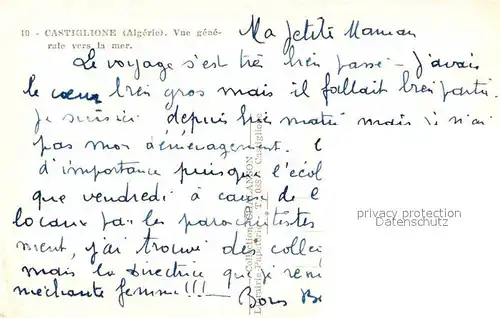 10 - CASTIGLIONE (Algérie). Vue géné-
rale vers la mer.
Ma petite Maman
Le voyage s'est très bien passé - J'avais
le cœur bien gros mais il fallait bien partir.
Je suis ici depuis hier matin mais je n'ai
pas mon déménagement.
d'importance puisque l'écol
que vendredi à cause de l
locaux par les parachutistes
ment, j'ai trouvé des collè
mais la Directrice que je
méchante femme!!! - Bons
Collection P. LANSON
Librairie-Papeterie - Castiglione
privacy protection
Datenschutz